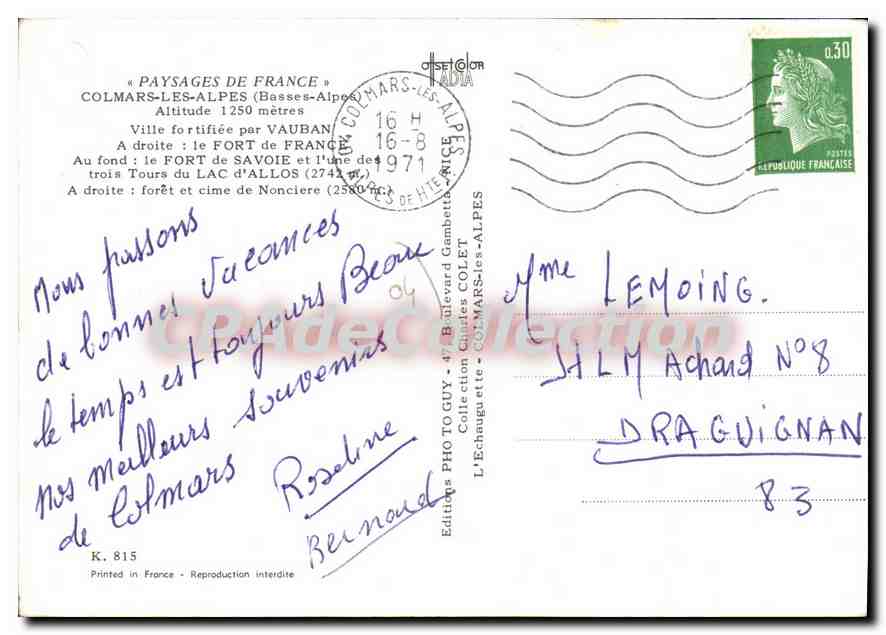 « PAYSAGES DE FRANCE »
COLMARS-LES-ALPES (Basses-Alpes)
Altitude 1250 mètres
Ville fortifiée par VAUBAN
A droite : le FORT de FRANCE
Au fond : le FORT de SAVOIE et l'une des
trois Tours du LAC d'ALLOS (2742 m.)
A droite : forêt et cime de Nonciere (2580 m.)
Nous passons
de bonnes vacances
le temps est toujours Beau
nos meilleurs souvenirs
de Colmars
Roseline
Bernard
04
K. 815
Printed in France - Reproduction interdite
OFFSET COLOR
IADIA
04 COLMARS-LES-ALPES
16 H
16-8
1971
ALPES DE HTE P.
Editions PHOTOGUY - 47, Boulevard Gambetta - NICE
Collection Charles COLET
L'Echauguette - COLMARS-les-ALPES
0,30
POSTES
REPUBLIQUE FRANÇAISE
Mme LEMOING.
HLM Achard N°8
DRAGUIGNAN
83
CPAdeCollection